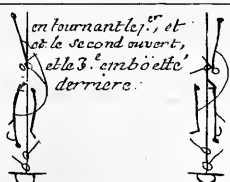 en tournant le 1.er, et
et le second ouvert,
et le 3.e emboëtté
derriere.